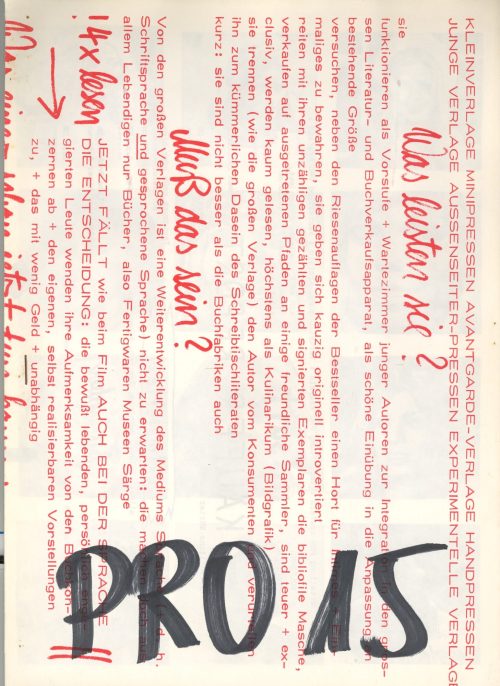 KLEINVERLAGE MINIPRESSEN AVANTGARDE-VERLAGE HANDPRESSEN
JUNGE VERLAGE AUSSENSEITER-PRESSEN EXPERIMENTELLE VERLAGE
Was leisten sie?
sie
funktionieren als Vorstufe + Wartezimmer junger Autoren zur Integration in den gros-
sen Literatur- und Buchverkaufsapparat, als schöne Einübung in die Anpassung an
bestehende Größe
versuchen, neben den Riesenauflagen der Bestseller einen Hort für
maliges zu bewahren, sie geben sich kauzig originell introvertiert
reiten mit ihren unzähligen gezählten und signierten Exemplaren die bibliofile Masche,
verkaufen auf ausgetretenen Pfaden an einige freundliche Sammler, sind teuer + ex-
clusiv, werden kaum gelesen, höchstens als Kulinarikum (Bildgrafik)
sie trennen (wie die großen Verlage) den Autor vom Konsumenten und verurteilen
ihn zum kümmerlichen Dasein des Schreibtischliteraten
kurz: sie sind nicht besser als die Buchfabriken auch
Muß das sein?
Von den großen Verlagen ist eine Weiterentwicklung des Mediums Sprache (d. h.
Schriftsprache und gesprochene Sprache) nicht zu erwarten: die machen doch aus
allem Lebendigen nur Bücher, also Fertigwaren Museen Särge
! 4x lesen
JETZT FÄLLT wie beim Film AUCH BEI DER SPRACHE
DIE ENTSCHEIDUNG: die bewußt lebenden, persönlich enga-
gierten Leute wenden ihre Aufmerksamkeit von den Buchkon-
zernen ab + den eigenen, selbst realisierbaren Vorstellungen
zu, + das mit wenig Geld + unabhängig
PRO 15